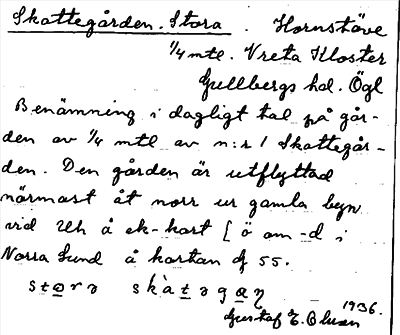 Skattegården, Stora. Hornstäve
1/4 mtl. Vreta Kloster
Gullbergs hd. Ögl
Benämning i dagligt tal på går-
den av 1/4 mtl av n:r 1 Skattegår-
den. Den gården är utflyttad
närmast åt norr ur gamla byn
vid Uh å ek-kart [ö om -d i
Norra Lund å kartan 55.
1936.
Gustaf E. Olsson